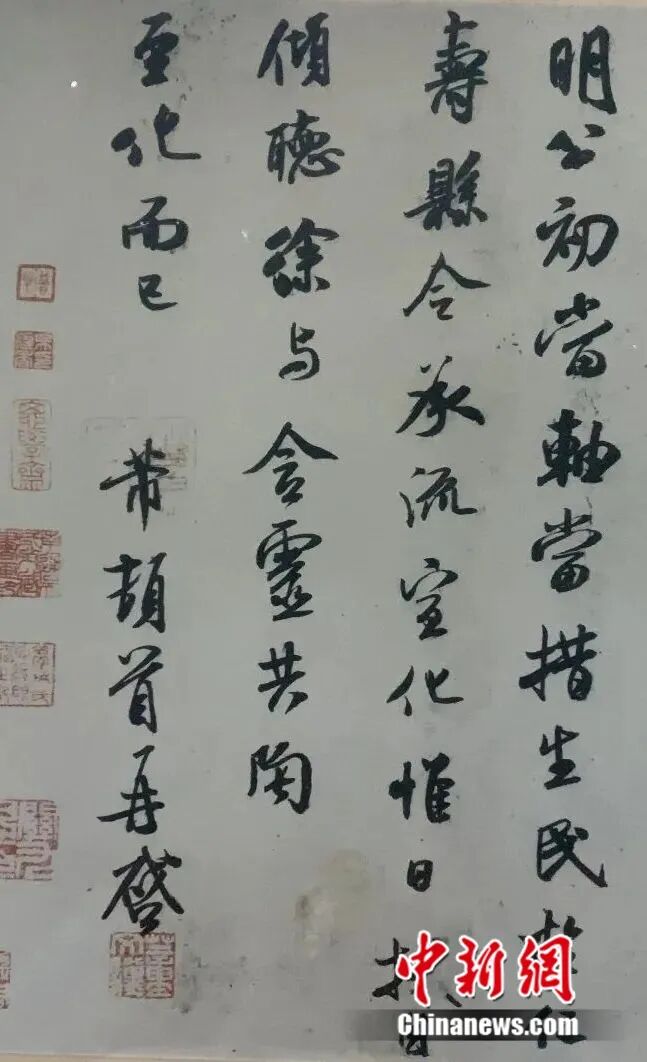 明公初當軸當措生民於仁
壽縣令承流宣化惟日拭目
傾聽徐与含靈共陶
至化而已 芾頓首再啓
中新網
Chinanews.com